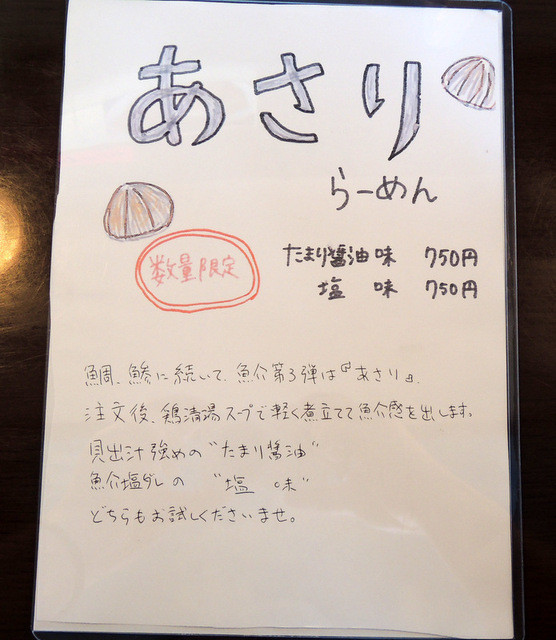 あさり
らーめん
数量限定
たまり醤油味 750円
塩 味 750円
鯛、鯵に続いて、魚介第3弾は『あさり』。
注文後、鶏清湯スープで軽く煮立てて魚介感を出します。
貝出汁強めの"たまり醤油"
魚介塩ダレの "塩 味"
どちらもお試しくださいませ。